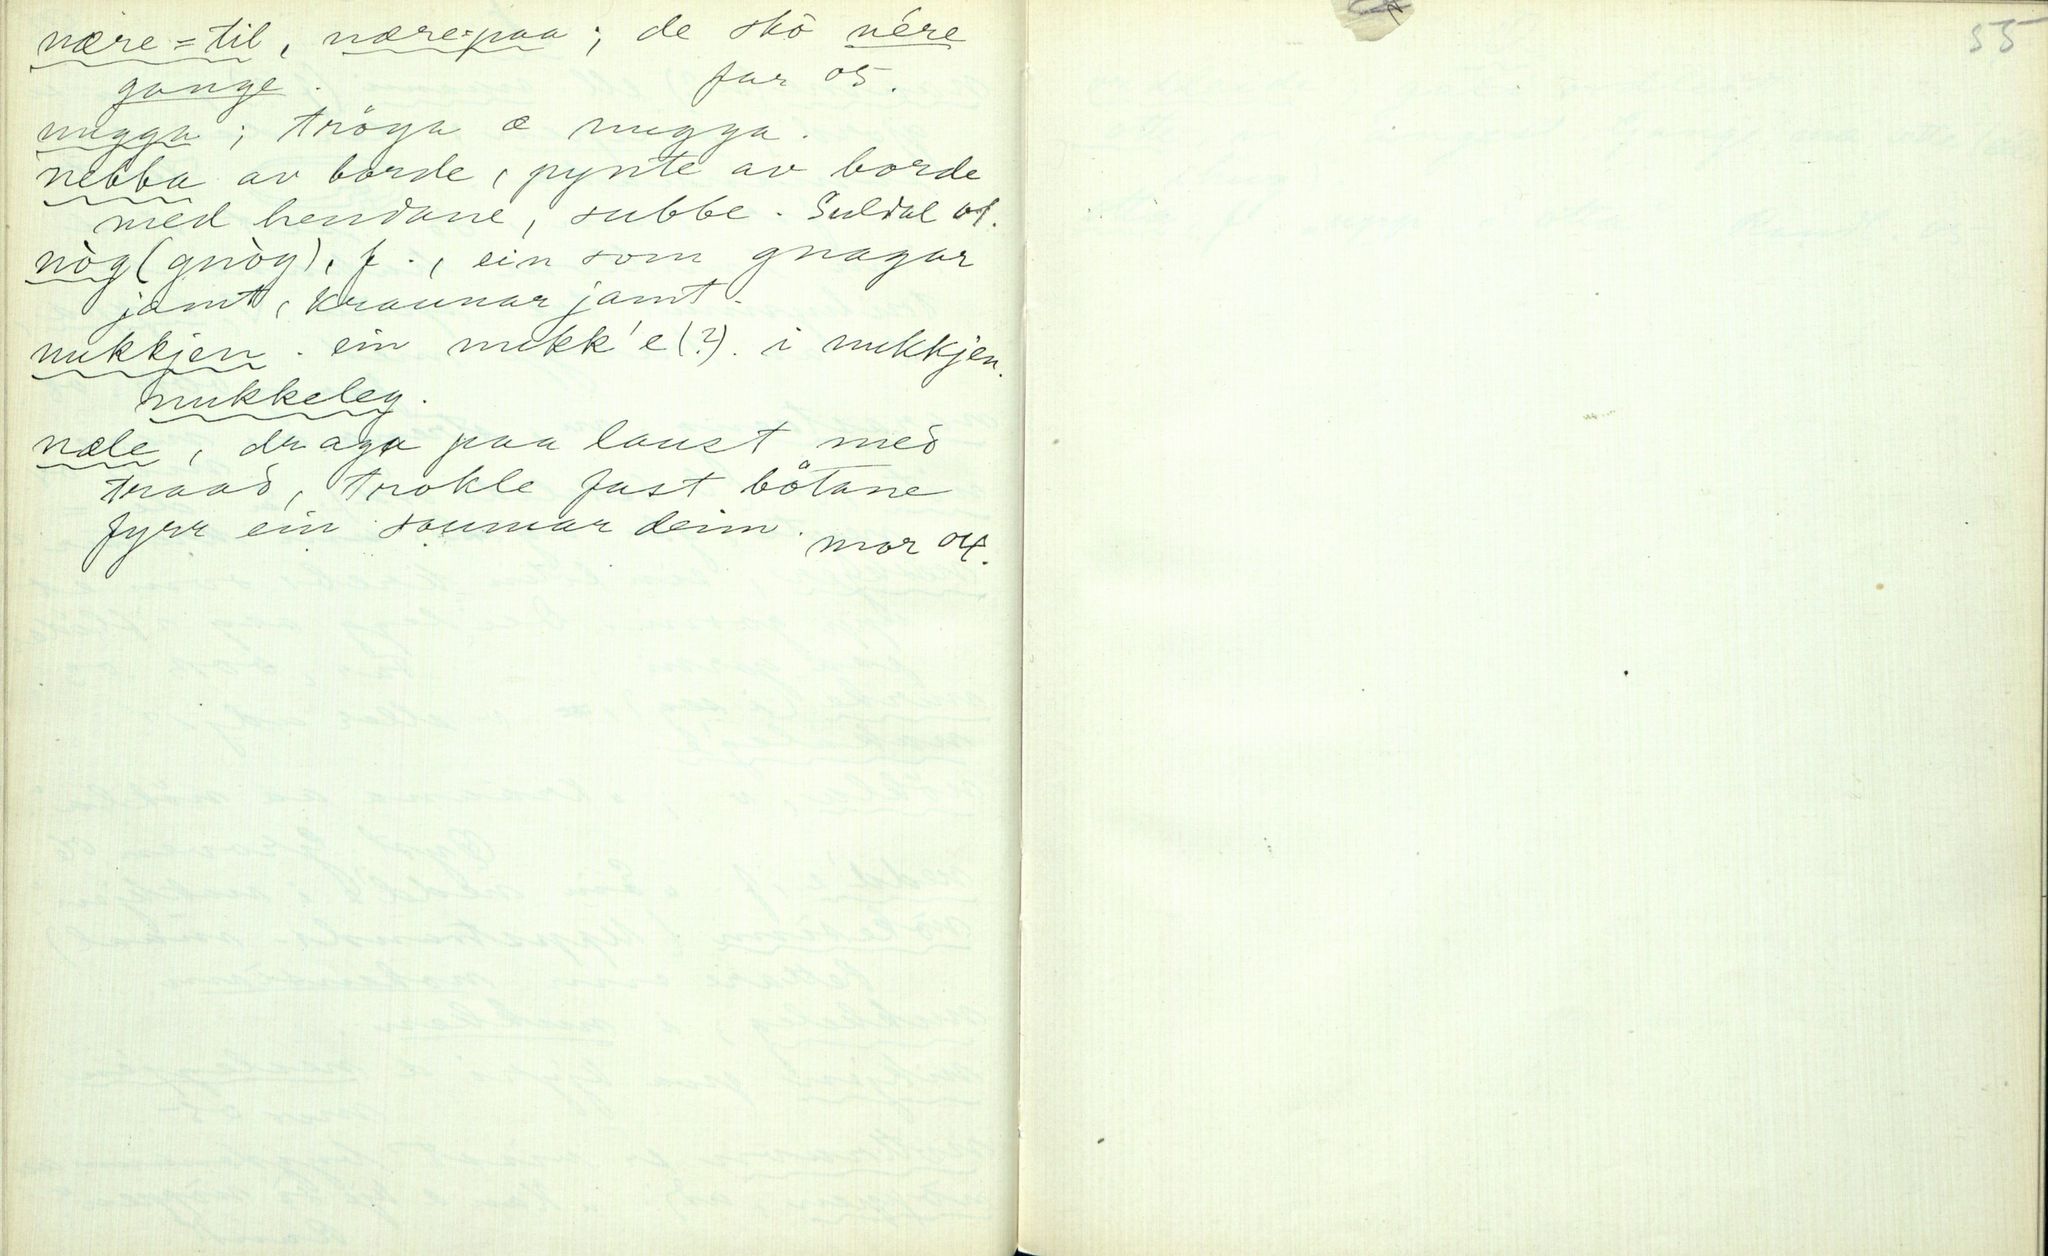 nære = til, nære = paa; de skò nére
gange. far 05.
nugga; tröya æ nugga.
nebba av borde, pynte av borde
med hendane, subbe. Suldal 01.
nòg (gnòg), f., ein som gnagar
jamt, kraunar jamt.
nukkjen. ein nukk'e (?). i nukkjen.
nukkeleg.
næle, draga paa laust med
traad, trokle fast bötane
fyrr ein saumar deim. mor 04.
55